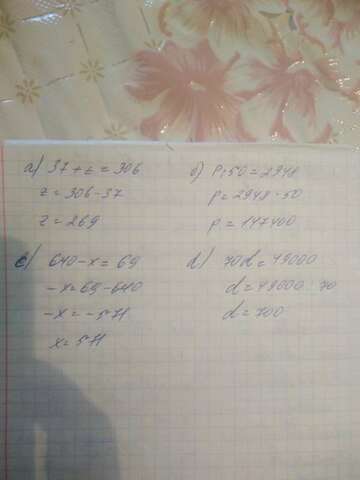 a) 37+z=306
z=306-37
z=269
b) p:50=2948
p=2948·50
p=147400
c) 640-x=69
-x=69-640
-x=-571
x=571
d) 70d=49000
d=49000:70
d=700